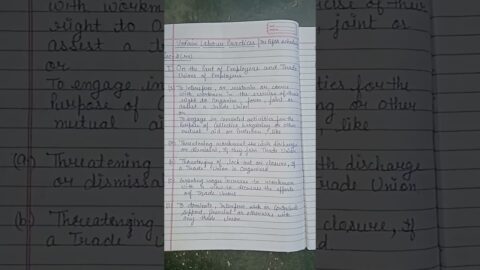 with workmen
right to organise
assist a t
or
To engage in
Purpose of C
mutual ai
(a) Threatening
or dismissa
(b) Threatening
a Trade U
Unfair Labour Practices The Fifth
I) On the Part of Employers and Trade
Unions of Employers
To interfere, or restrain or coerce
with workmen in the exercise of their
right to organise, form, joint or
assist a Trade Union
or
To engage in concerted activities for the
Purpose of Collective bargaining or other
mutual aid or Protection like
(a) Threatening workmen with discharge
or dismissal, if they join Trade Union
(b) Threatenging of lock out or closure, if
a Trade Union is organised
(c) Granting wages increase to workmen
with a view to the efforts
of Trade Union
2) To dominate, interfere with or Contribute
support, financial or otherwise with
any Trade Union
cise of their
joint or
ties for the
ng or other
like
th discharge
rade Union
closure, if